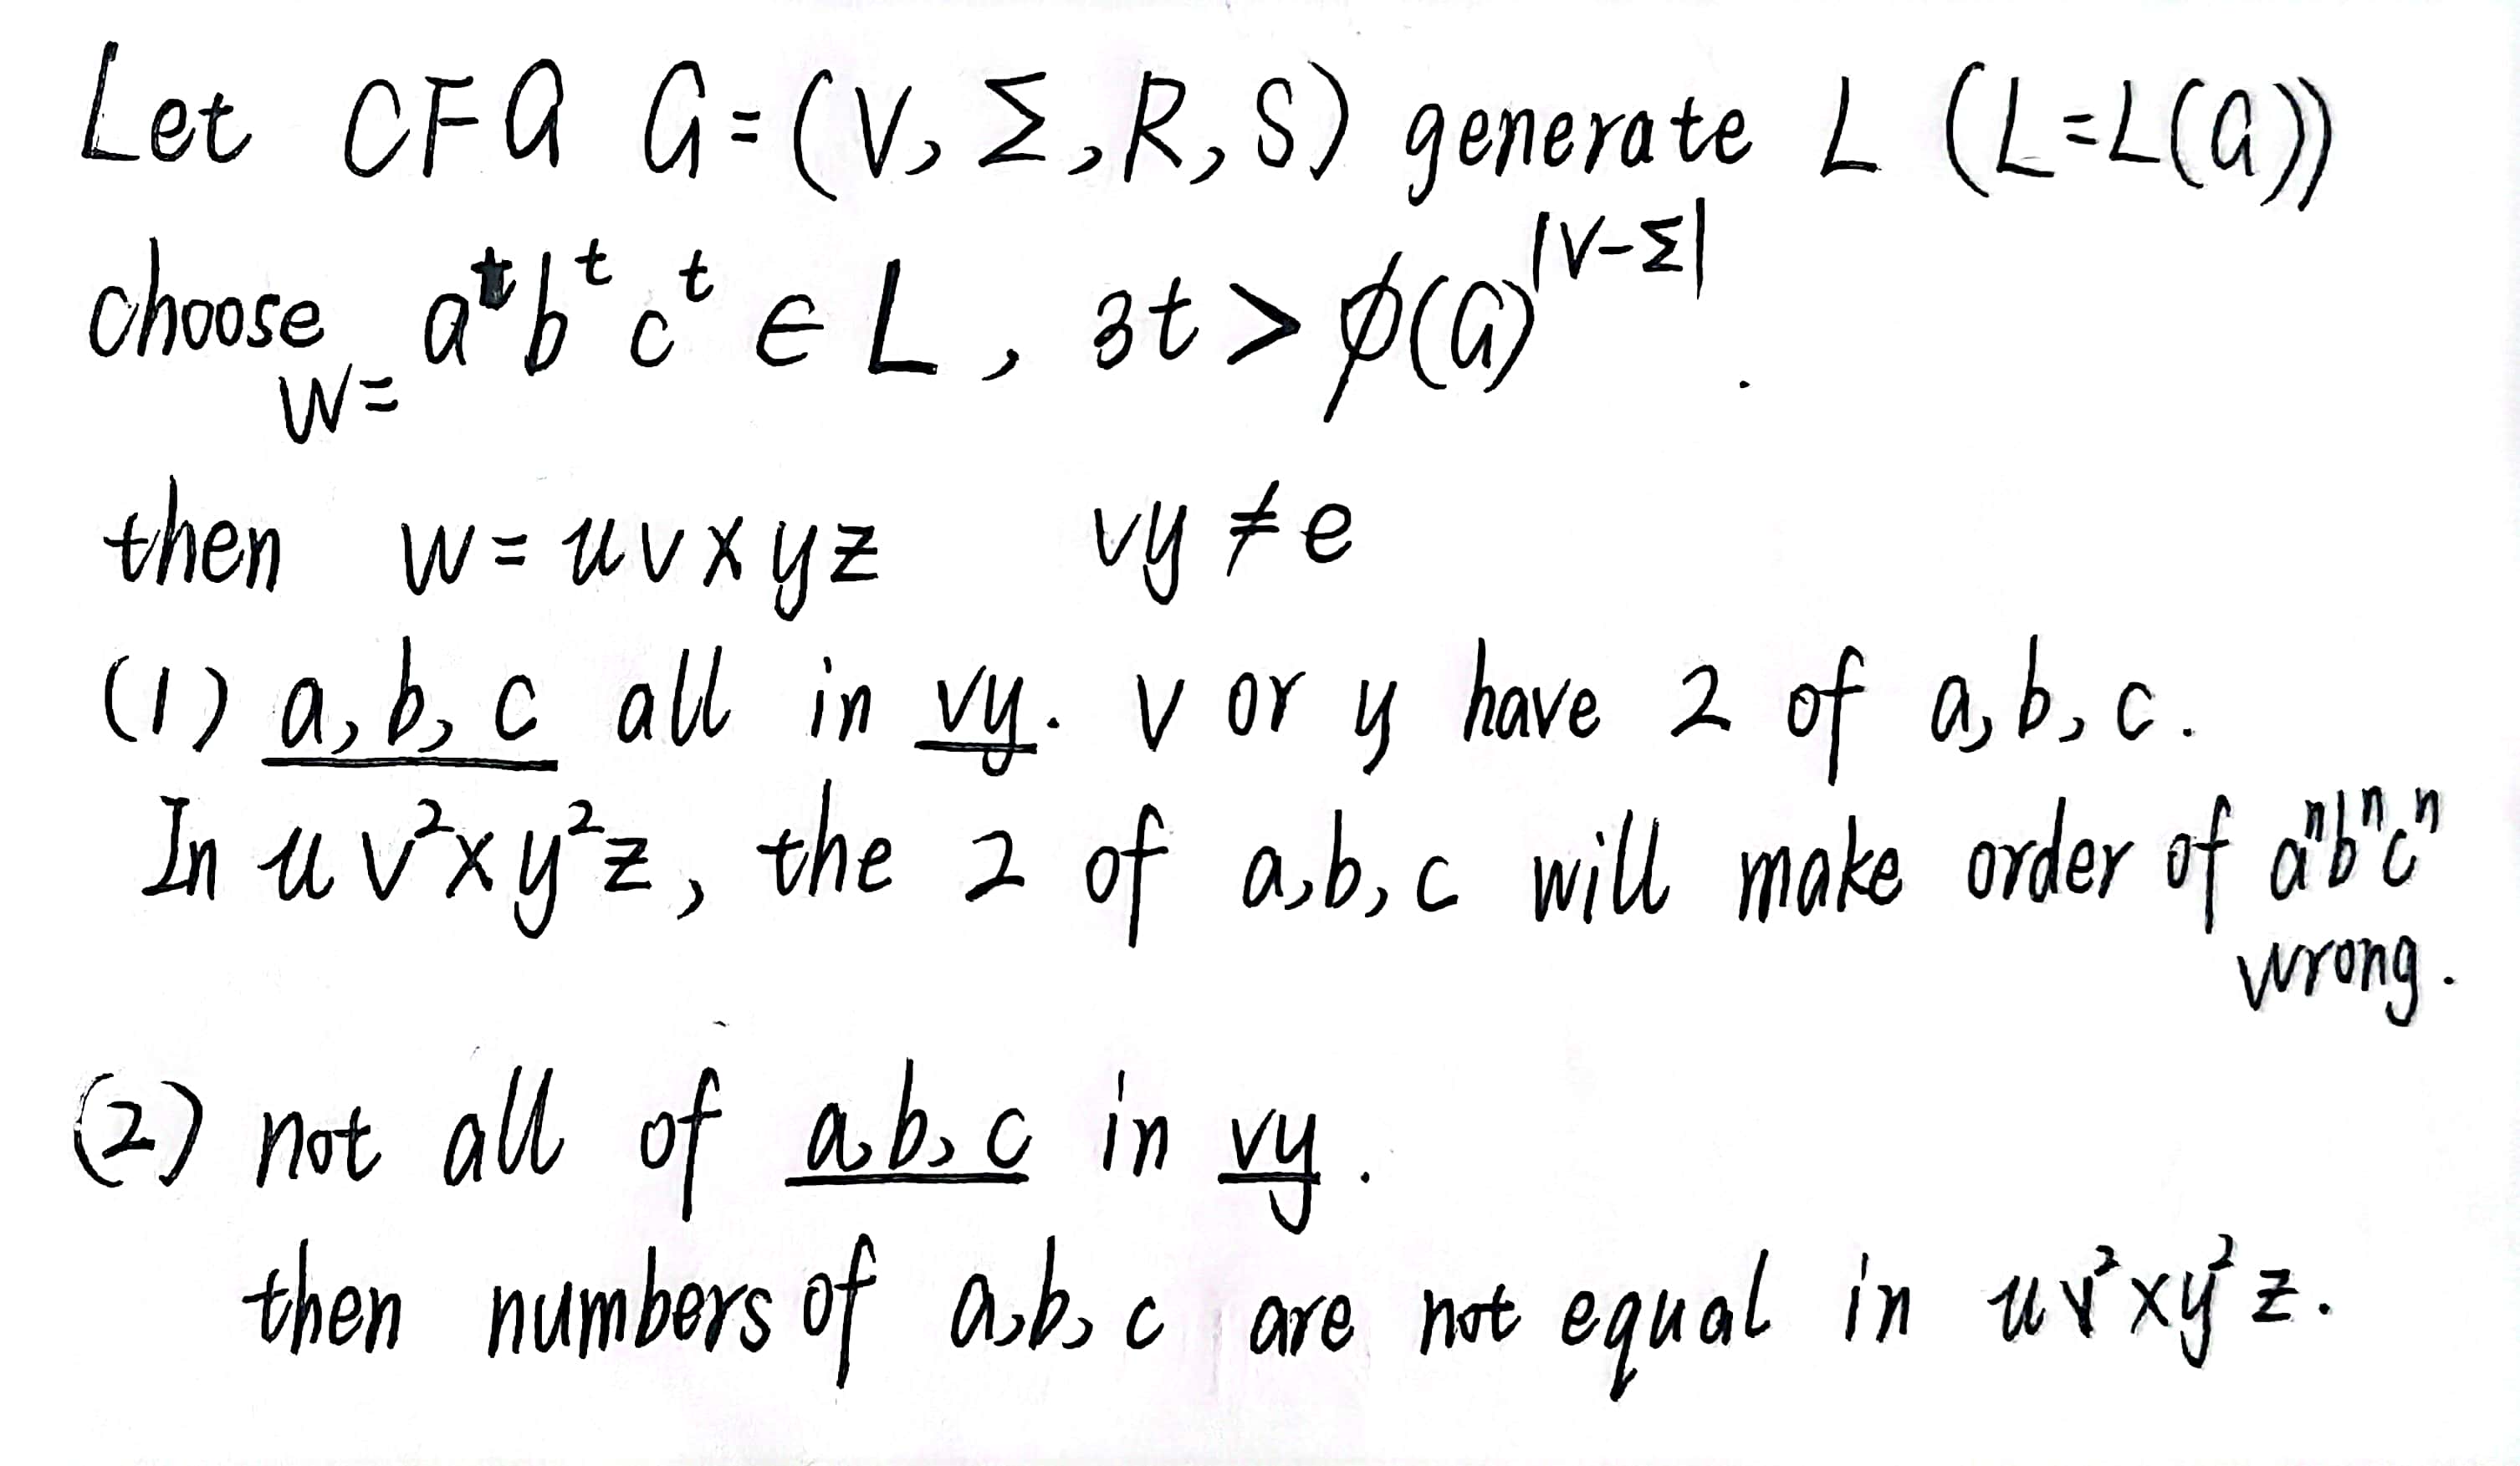 Let CFG G=(V, Σ, R, S) generate L (L=L(G))
choose w= a^t b^t c^t ∈ L, 3t > ϕ(G)^|V-Σ|.
then w=uvxyz vy ≠ e
(1) a, b, c all in vy. v or y have 2 of a, b, c.
In uv²xy²z, the 2 of a, b, c will make order of aⁿbⁿcⁿ
wrong.
(2) not all of a, b, c in vy.
then numbers of a, b, c are not equal in uv²xy²z.